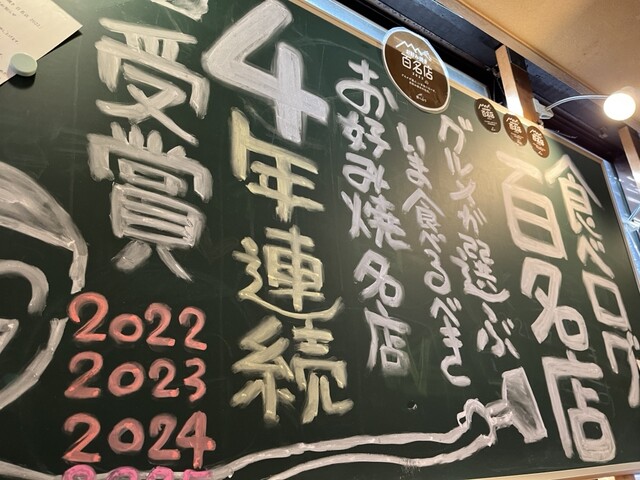 食べログ
百名店
グルメが選ぶ
いま食べるべき
お好み焼名店
4年連続
受賞
2022
2023
2024
2025
百名店